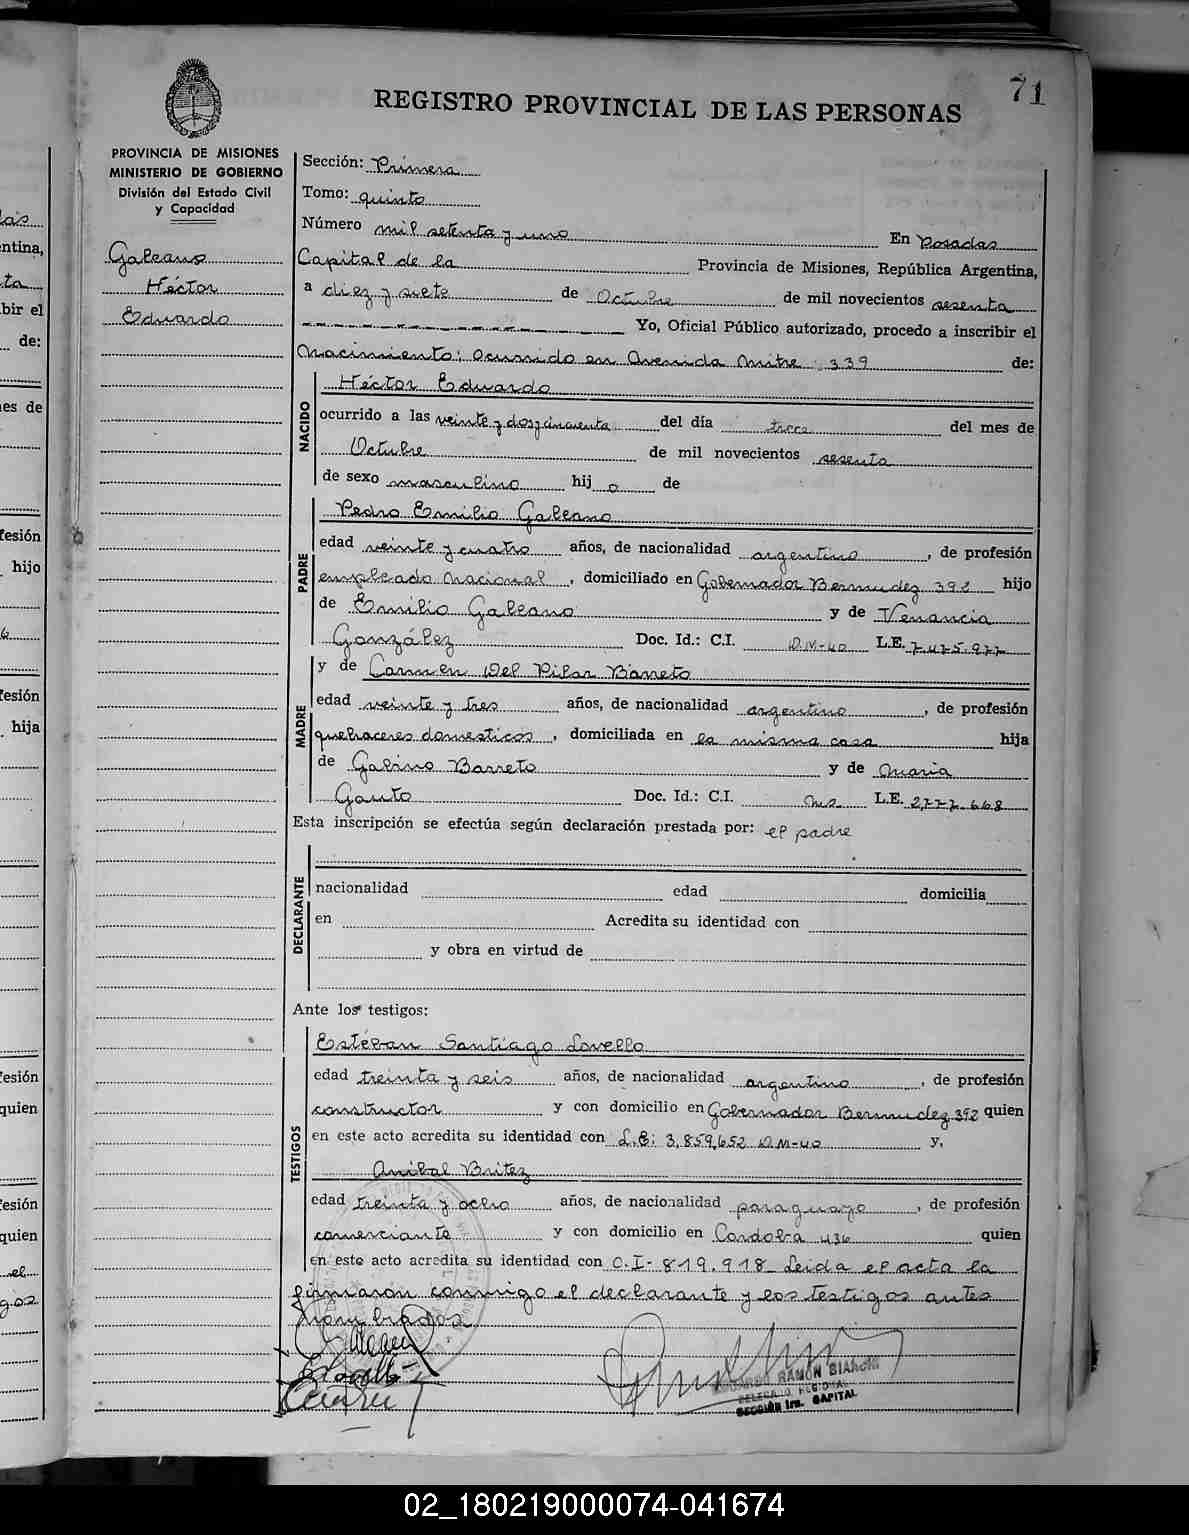 71
REGISTRO PROVINCIAL DE LAS PERSONAS
PROVINCIA DE MISIONES
MINISTERIO DE GOBIERNO
División del Estado Civil
y Capacidad
Galeano
Héctor
Eduardo
Sección: Primera
Tomo: quinto
Número mil setenta y uno En Posadas
Capital de la Provincia de Misiones, República Argentina,
a diez y siete de Octubre de mil novecientos sesenta
Yo, Oficial Público autorizado, procedo a inscribir el
Nacimiento: ocurrido en Avenida Mitre 339 de:
NACIDO
Héctor Eduardo
ocurrido a las veinte y dos, cincuenta del día trece del mes de
Octubre de mil novecientos sesenta
de sexo masculino hijo de
PADRE
Pedro Emilio Galeano
edad veinte y cuatro años, de nacionalidad argentino, de profesión
empleado Nacional, domiciliado en Gobernador Bermudez 392 hijo
de Emilio Galeano y de Venancia
González Doc. Id.: C.I. D.M-40 L.E. 7.475.977
y de Carmen Del Pilar Barreto
MADRE
edad veinte y tres años, de nacionalidad argentino, de profesión
quehaceres domesticos, domiciliada en la misma casa hija
de Galino Barreto y de Maria
Gauto Doc. Id.: C.I. L.E. 2.777.668
Esta inscripción se efectúa según declaración prestada por: el padre
DECLARANTE
nacionalidad edad domicilia
en Acredita su identidad con
y obra en virtud de
Ante los testigos:
TESTIGOS
Estéban Santiago Lovello
edad treinta y seis años, de nacionalidad argentino, de profesión
constructor y con domicilio en Gobernador Bermudez 392 quien
en este acto acredita su identidad con L.E: 3.859.652 D.M-40 y,
Anibal Britez
edad treinta y ocho años, de nacionalidad paraguayo, de profesión
comerciante y con domicilio en Cordoba 436 quien
en este acto acredita su identidad con C.I- 819.918_ Leida el acta la
firmaron conmigo el declarante y los testigos antes
nombrados
EDUARDO RAMON BIANCHI
DELEGADO REGIONAL
SECCIÓN 1ra. CAPITAL
02_180219000074-041674